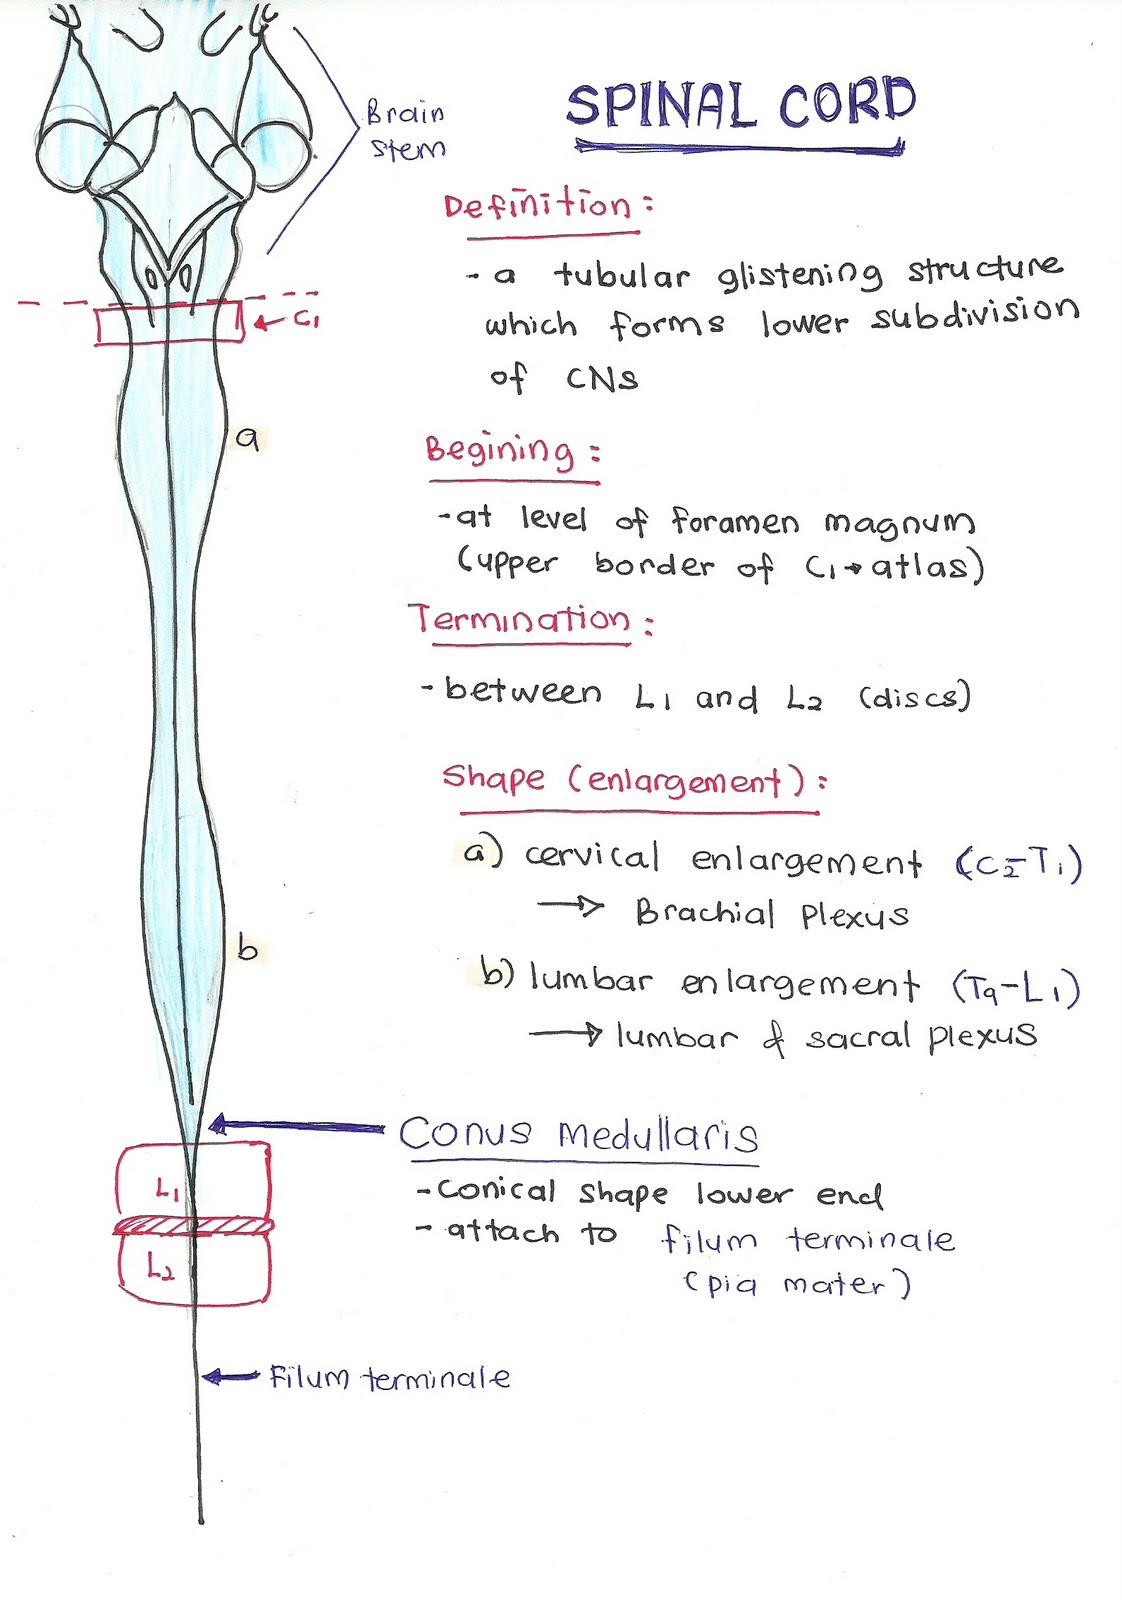 SPINAL CORD
Brain
stem
Definition:
- a tubular glistening structure
which forms lower subdivision
of CNS
C1
a
Begining:
- at level of foramen magnum
(upper border of C1→atlas)
Termination:
- between L1 and L2 (discs)
Shape (enlargement):
a) cervical enlargement (C2-T1)
→ Brachial plexus
b
b) lumbar enlargement (T9-L1)
→ lumbar & sacral plexus
Conus medullaris
- conical shape lower end
- attach to filum terminale
(pia mater)
L1
L2
Filum terminale